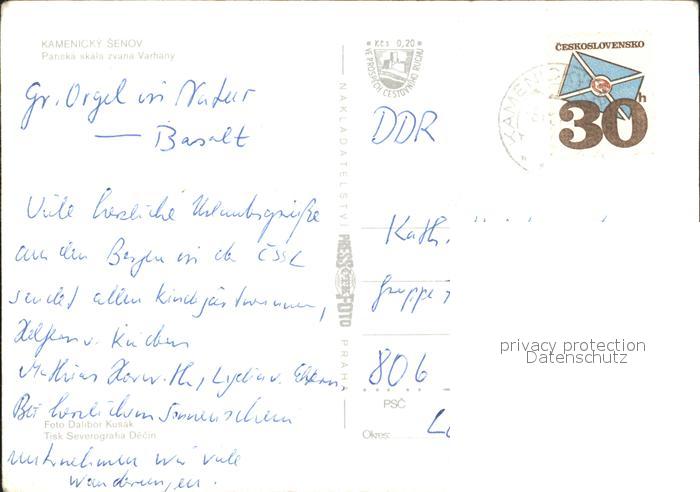 KAMENICKÝ ŠENOV
Panská skála zvaná Varhany
Gr. Orgel in Natur
— Basalt
Viele herzliche Urlaubsgrüße
aus den Bergen in der ČSSR
sendet allen Kindergärtnerinnen,
Helfern u. Kindern
Mathias, Lydia u. Eltern
Bei herrlichem Sonnenschein
unternehmen wir viele
Wanderungen.
Foto Dalibor Kusák
Tisk Severografia Děčín
NAKLADATELSTVÍ PRESSFOTO PRAHA
Kčs 0,20
VE PROSPĚCH CESTOVNÍHO RUCHU
ČESKOSLOVENSKO
30h
KAMENICKÝ
DDR
Kath.
Gruppe
806
PSČ
Okres:
privacy protection
Datenschutz